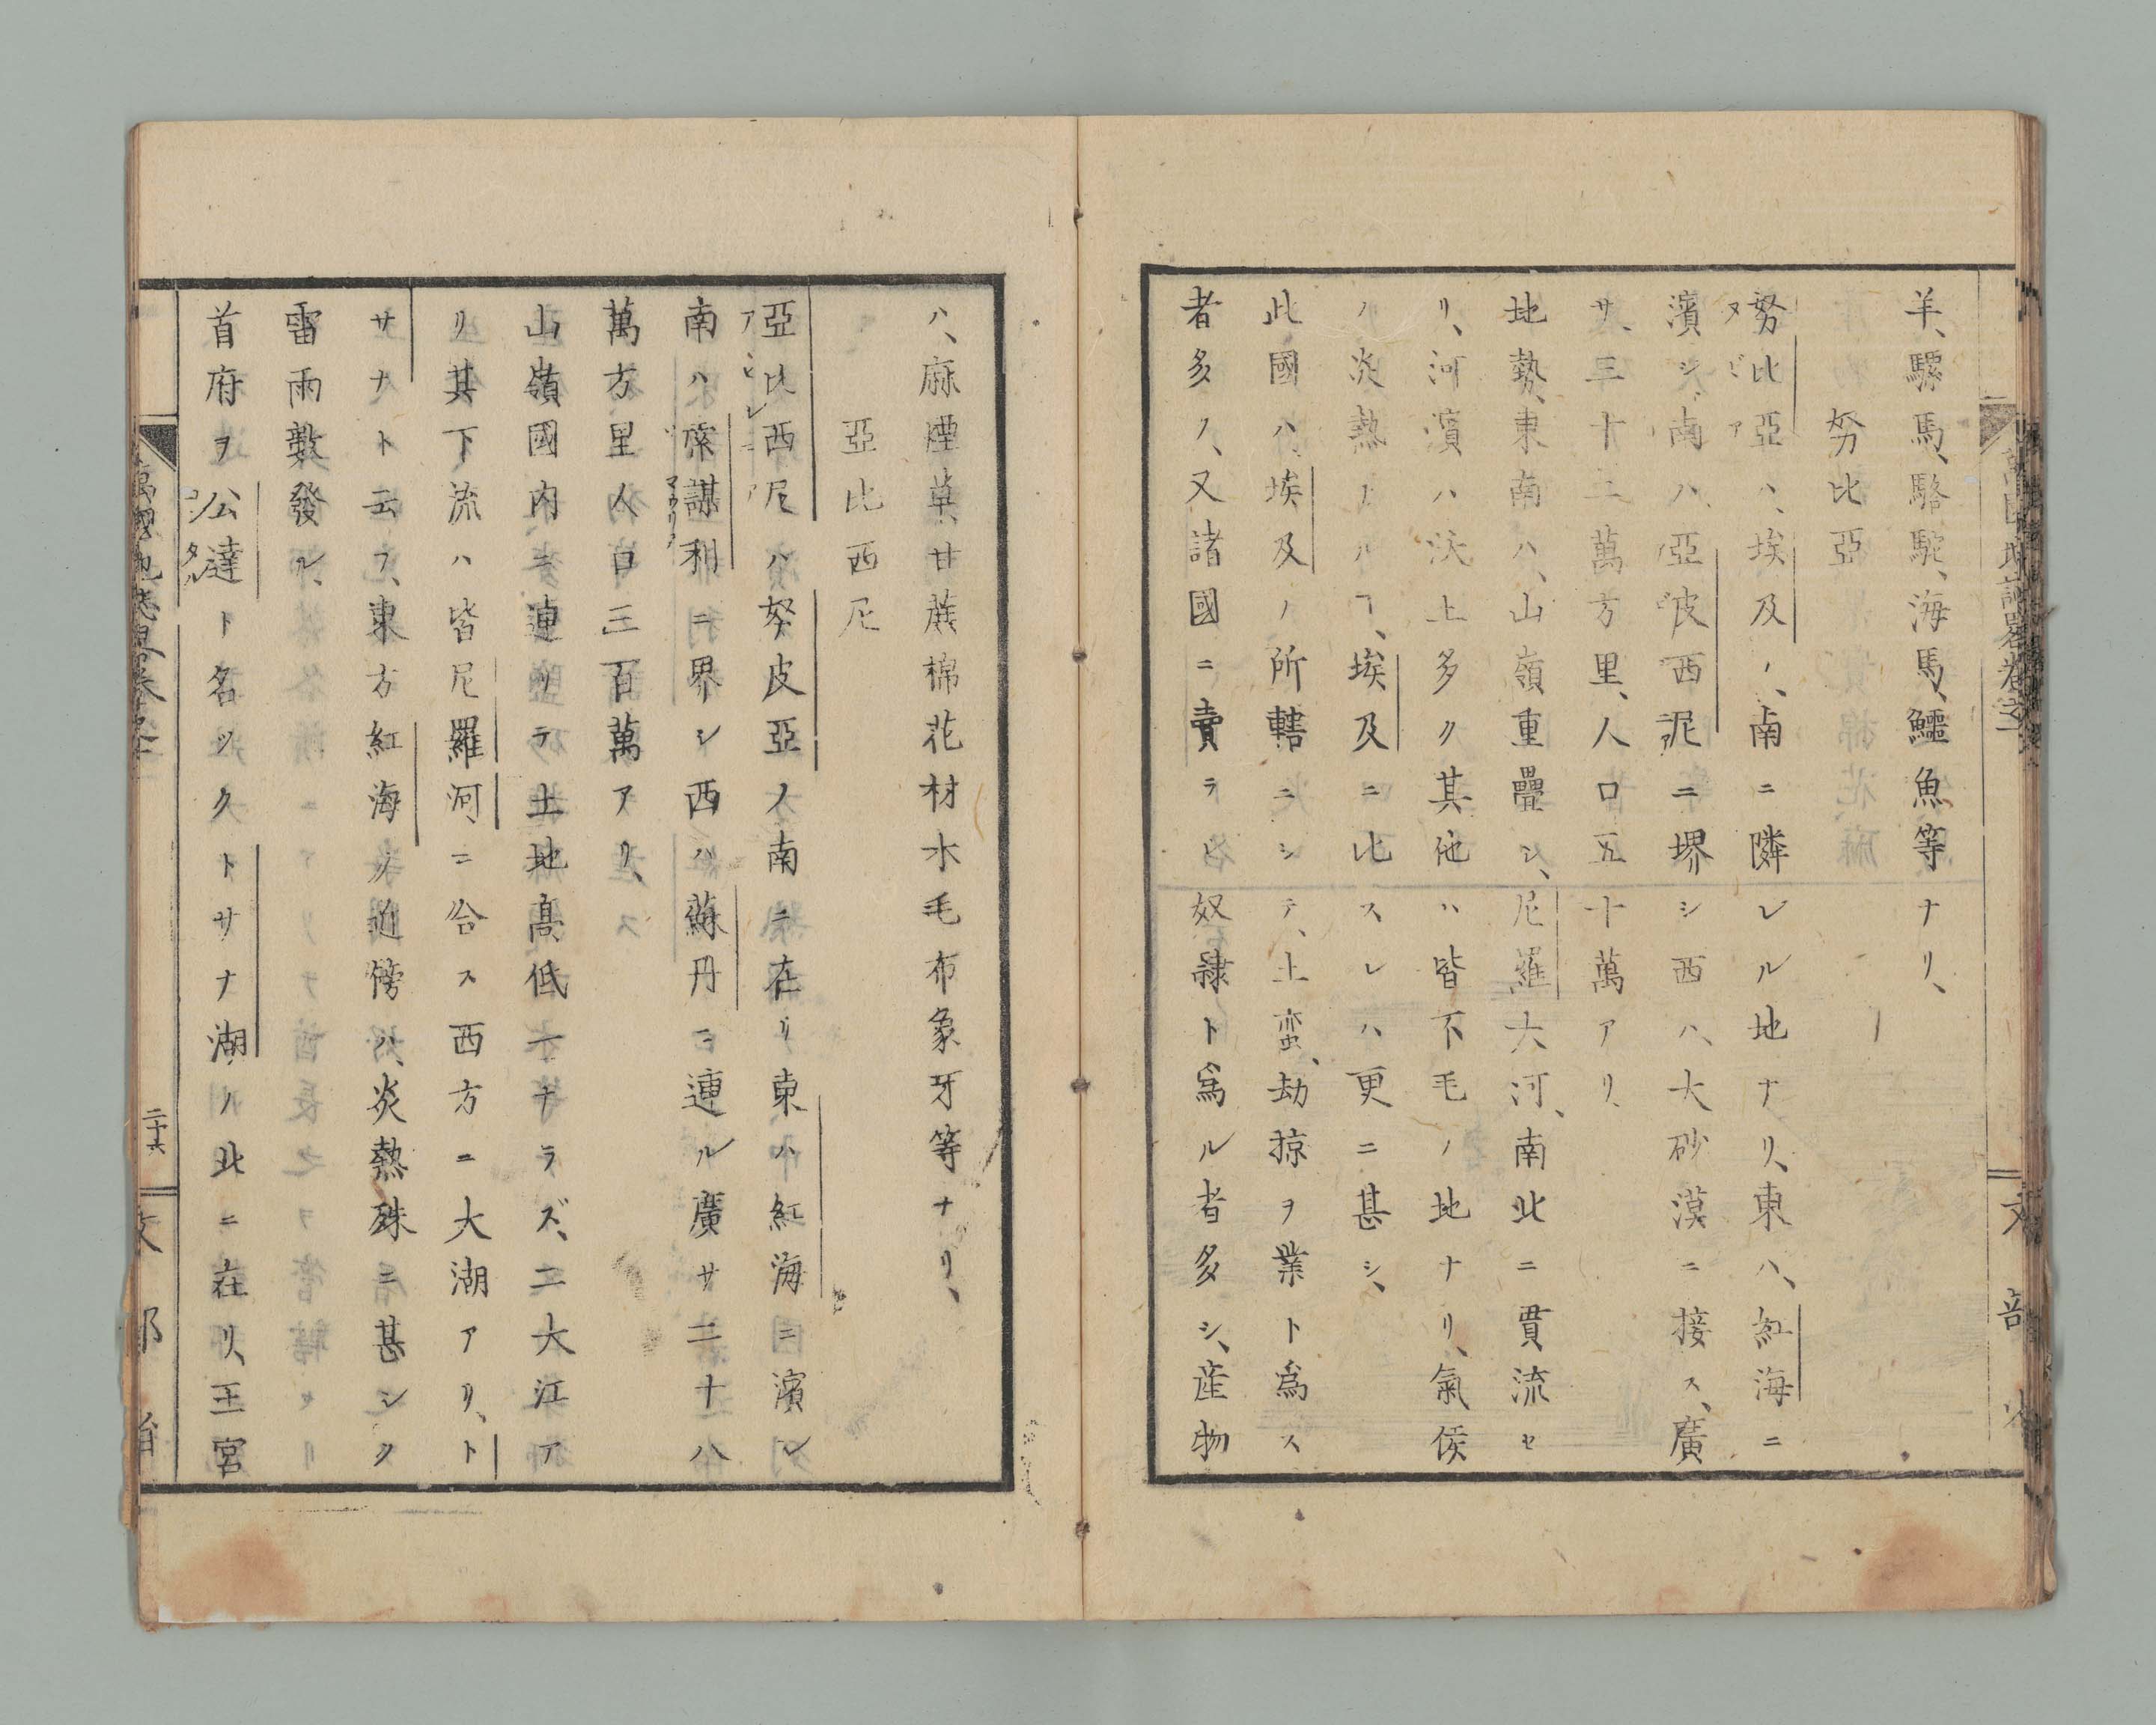 羊、騾馬、駱駝、海馬、鱷魚等ナリ、
努比亞
努比亞ハ、埃及ノ、南ニ隣レル地ナリ、東ハ、紅海ニ
ヌビア
濱シ、南ハ、亞皮西泥ニ堺シ西ハ、大砂漠ニ接ス、廣
サ、三十二萬方里、人口五十萬アリ、
地勢、東南ハ、山嶺重疊シ、尼羅大河、南北ニ貫流セ
リ、河濱ハ沃土多ク其他ハ皆不毛ノ地ナリ、氣侯
ノ炎熱ナルヿ、埃及ニ比スレハ更ニ甚シ、
此國ハ、埃及ノ所轄ニシテ、土蛮、劫掠ヲ業ト爲ス
者多ク、又諸國ニ賣ラレ奴隷ト爲ル者多シ、産物
文部省
ハ、麻煙草甘蔗棉花材木毛布象牙等ナリ、
亞比西尼
亞比西尼ハ努皮亞ノ南ニ在リ東ハ紅海ニ濱シ
アビシニア
南ハ謀利ニ界シ西ハ蘇丹ニ連ル廣サ二十八
マウリア
萬方里人口三百萬アリ、
山嶺國内ニ連リテ土地髙低一ナラズ、二大江ア
リ其下流ハ皆尼羅河、ニ合ス西方ニ大湖アリ、ト
サナト云フ、東方紅海ノ近傍ハ、炎熱殊ニ甚シク
雷雨數發ル、
首府ヲ公達ト名ツクトサナ湖ノ北ニ在リ、王宮
コンタル
萬國地誌畧卷之二
二十六
文部省